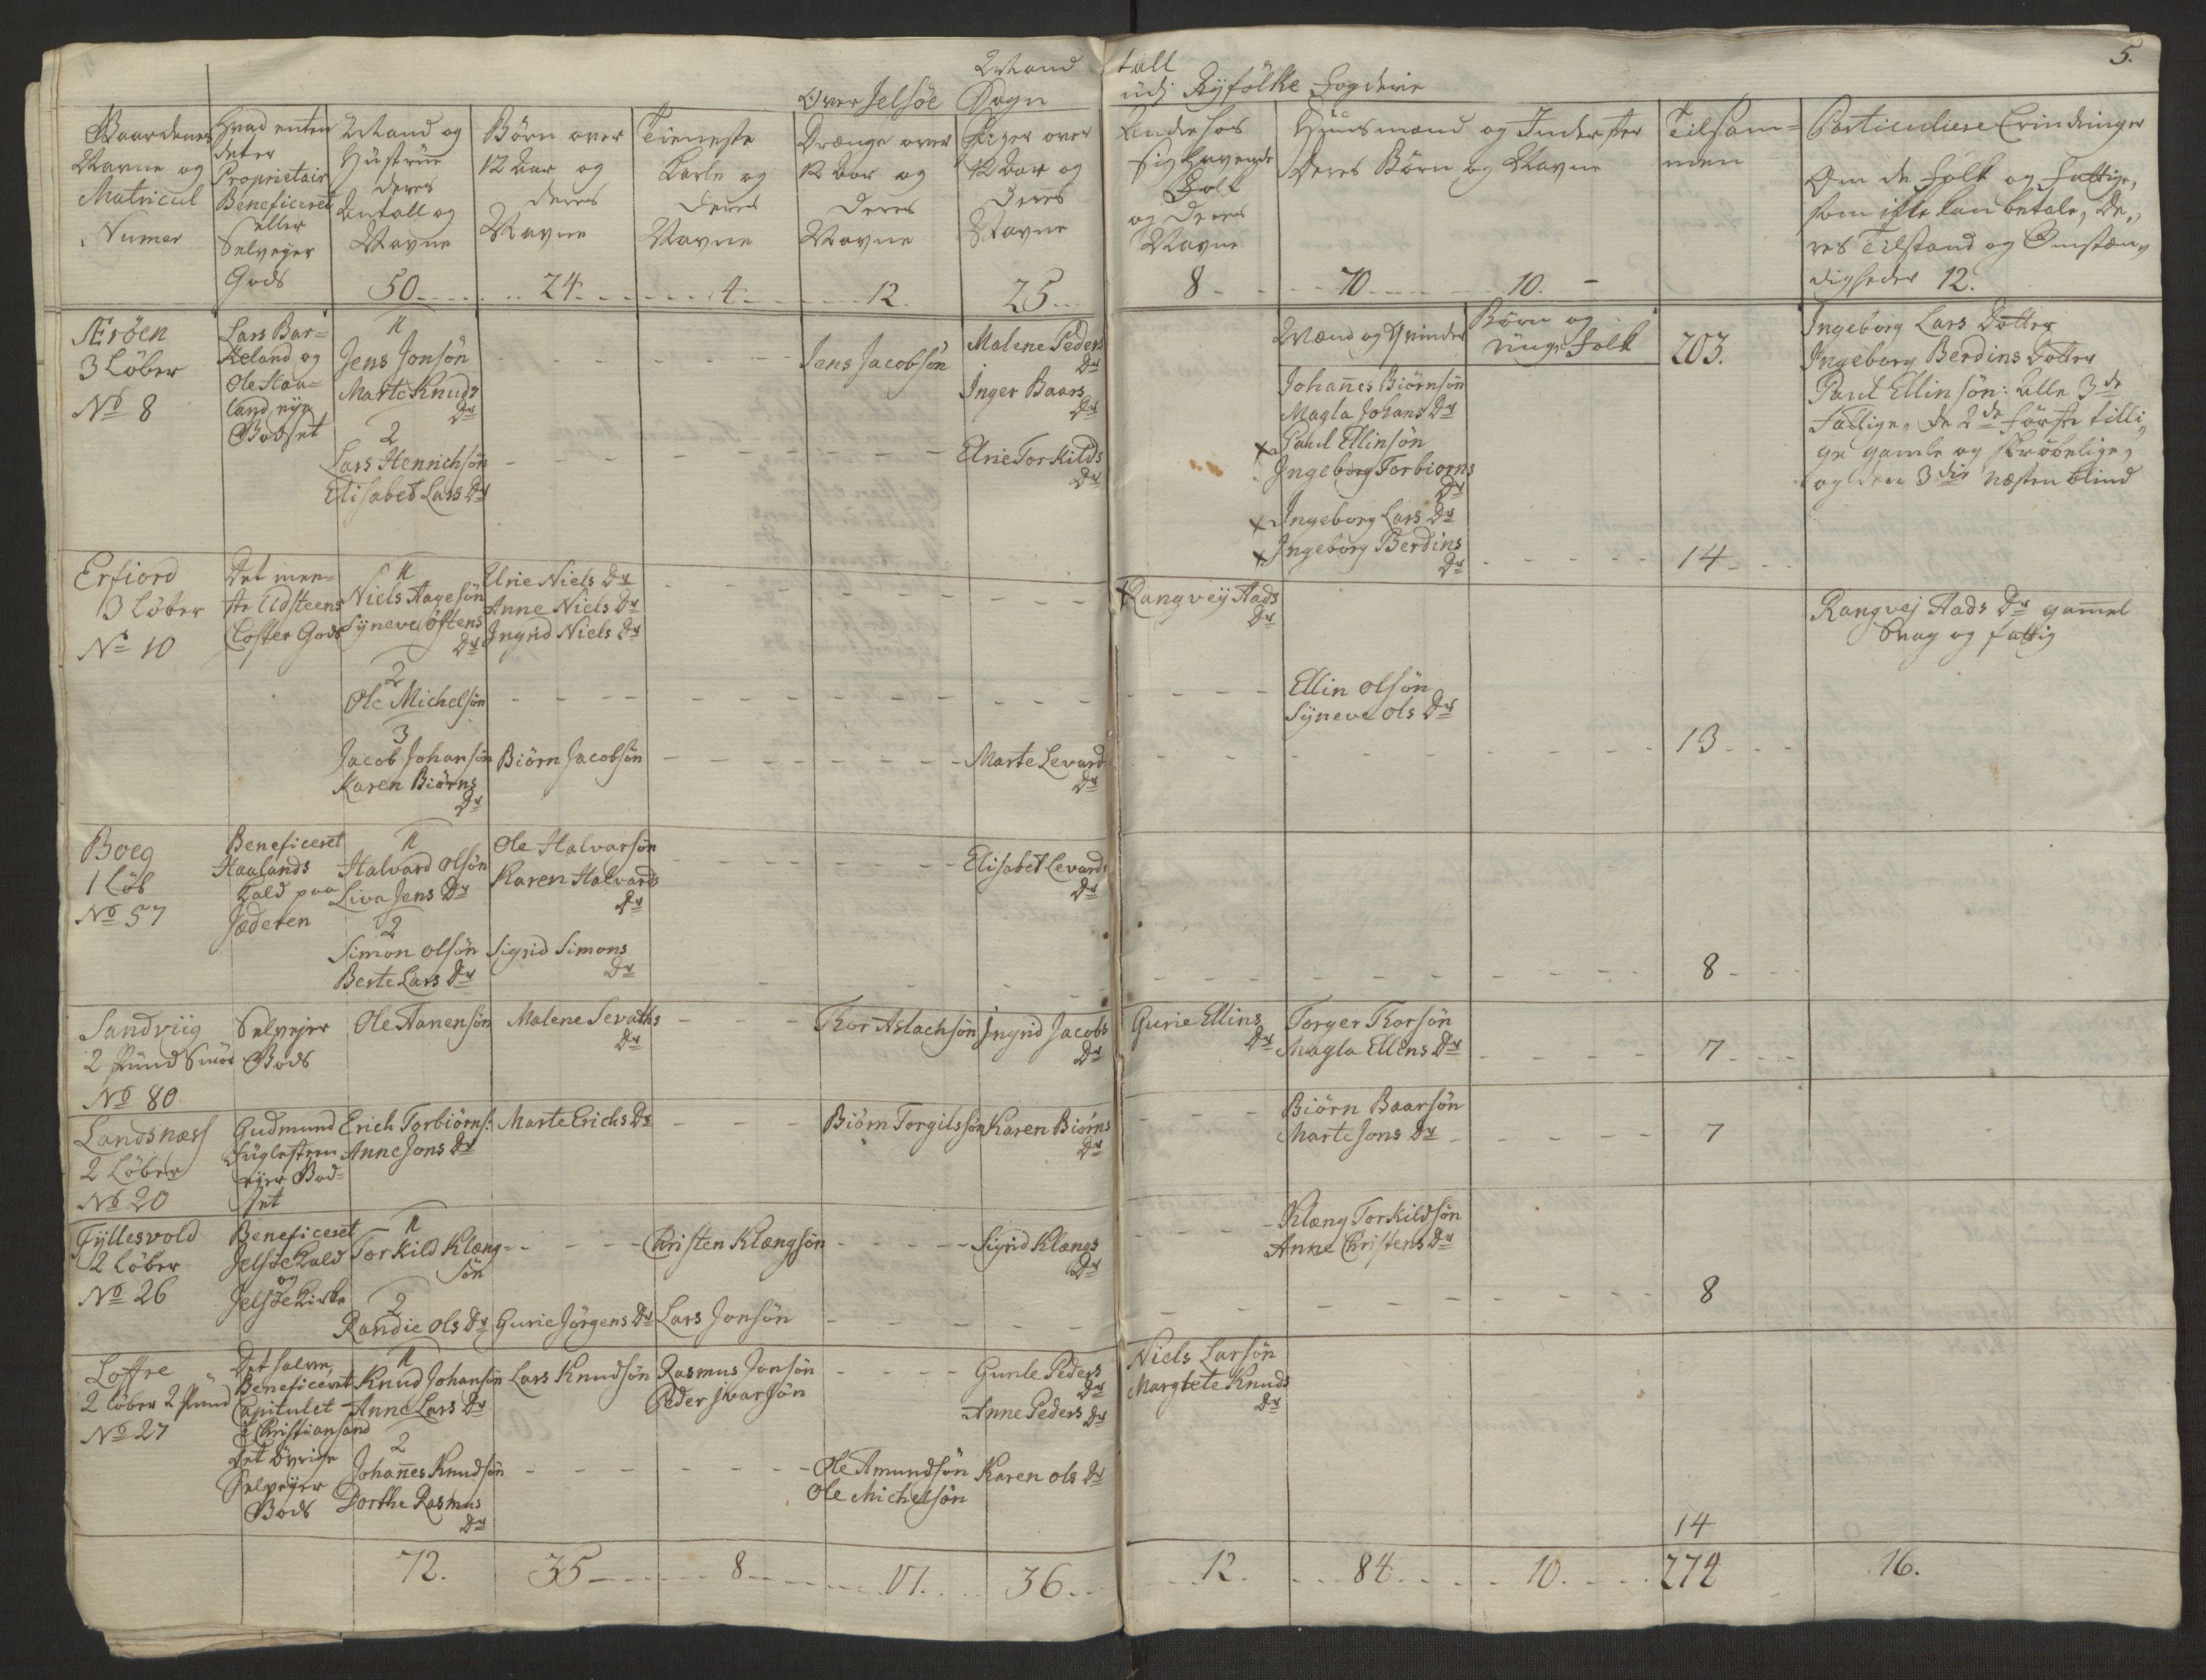 Mand tall
Over Jelsöe Sogn udj Ryfölke Fogderie
5.
Gaardenes Navne og Matricul Numer
Hvad enten det er Proprietair Beneficeret eller Selveyer Gods
Mand og Hustrue deres Antall og Navne
Börn over 12 Aar og deres Navne
Tieneste Karle og deres Navne
Drænge over 12 Aar og deres Navne
Piger over 12 Aar og deres Navne
Andre hos sig havende Folk og deres Navne
Huusmænd og Inderster Deres Börn og Navne
Tilsam=
men
Particuliere Erindringer
Om de Folk og Fattige,
som ikke kan betale, De,,
res Tilstand og Omstæn,,
digheder 12.
50 24 4 12. 25 8 10 10.
Mænd og Qvinder
Börn og unge Folk
203.
Æröen
3 Löber
No 8
Lars Bar=
keland og
Ole Haa=
land eye
Godset
1
Jens Jonsön
Marte Knuds
Dr
2
Lars Henrichsön
Elisabet Lars Dr
Jens Jacobsön
Malene Peders
Dr
Inger Baars
Dr
Elrie Torkilds
Dr
Johannes Biörnsön
Magla Johans Dr
x Paul Ellinsön
Ingeborg Torbiorns
Dr
x Ingeborg Lars Dr
x Ingeborg Berdins
Dr
14
Ingeborg Lars Dotter
Ingeborg Berdins Dotter
Paul Ellinsön: alle 3de
Fattige, de 2de förste tilli,,
ge gamle og skröbelige,
og den 3die næsten blind
Erfiord
3 Löber
No 10
Det meu=
ste Udsteens
Closter Gods
1
Niels Aagesön
Syneve Östens
Dr
2
Ole Michelsön
3
Jacob Johansön
Karen Biörns
Dr
Elrie Niels Dr
Anne Niels Dr
Ingrid Niels Dr
Biörn Jacobsön
Marte Levards
Dr
x Rangvey Aads
Dr
Ellin Olsön
Syneve Ols Dr
13
Rangvej Aads Dr gammel
Svag og fattig
Boeg
1 Löb
No 57
Beneficeret
Haalands
Kald paa
Jæderen
1
Halvard Olsön
Liva Jens Dr
2
Simon Olsön
Berte Lars Dr
Ole Halvarsön
Karen Halvards
Dr
Sigrid Simons
Dr
Elisabet Levards
Dr
8
Sandviig
2 Pund Smör
No 80
Selvejer
Gods
Ole Aanensön
Malene Sevaths
Dr
Thor Aslachsön
Ingrid Jacobs
Dr
Gurie Ellins
Dr
Torger Thorsön
Magla Ellens Dr
7
Landsnæss
2 Löber
No 20
Gudmund
Fuglesteen
ejer God=
set
Erich Torbiörns:
Anne Jons Dr
Marte Erichs Dr
Biörn Torgilssön
Karen Biörns
Dr
Biörn Baarsön
Marte Jons Dr
7
Fyllesvold
2 Löber
No 26
Beneficeret
Jelsöe Kald
og
Jelsöe Kirke
1
Torkild Klæng
sön
2
Randie Ols Dr
Gurie Jörgens Dr
Christen Klængsön
Lars Jonsön
Sigrid Klængs
Dr
Klæng Torkildsön
Anne Christens Dr
8
Loftre
2 löber 2 Pund
No 27
Det halve
Beneficeret
Capitulet
i Christiansand
Det övrige
Selveyer
Gods
1
Knud Johansön
Anne Lars Dr
2
Johannes Knudsön
Dorthe Rasmus
Dr
Lars Knudsön
Rasmus Jonsön
Peder Ivarsön
Ole Amundsön
Ole Michelsön
Gunle Peders
Dr
Anne Peders Dr
Karen Ols Dr
Niels Larsön
Margrete Knuds
Dr
14
72. 35 8 17. 36 12. 84 10. 274 16.